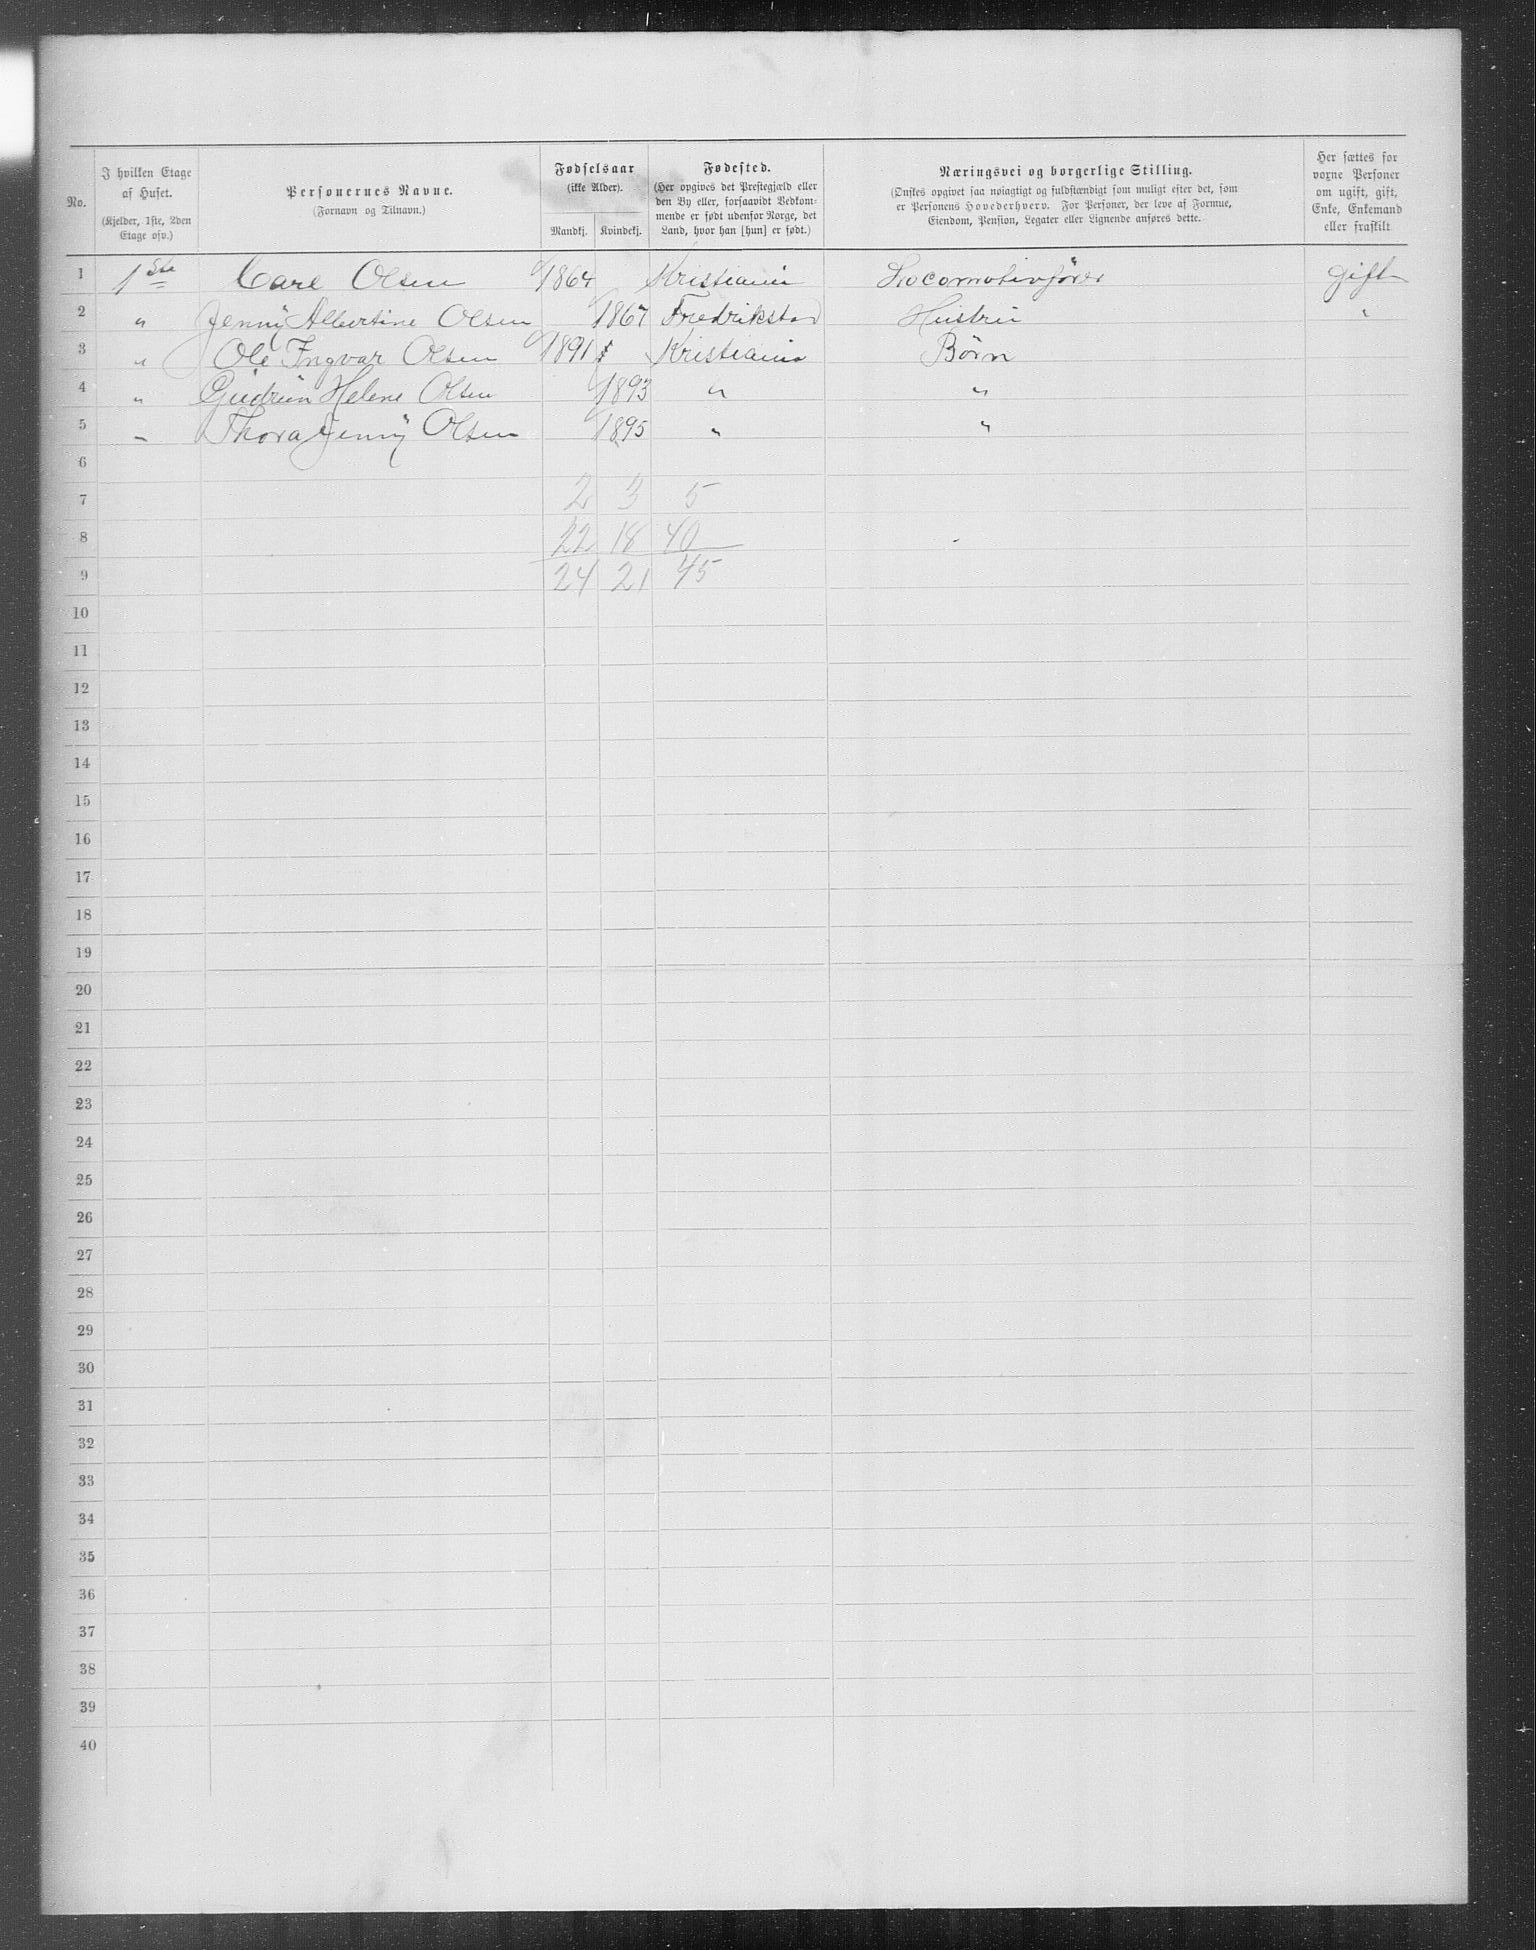 No. | I hvilken Etage af Huset. (Kjelder, 1ste, 2den Etage osv.) | Personernes Navne. (Fornavn og Tilnavn.) | Fødselsaar (ikke Alder). Mandkj. Kvindekj. | Fødested. (Her opgives det Prestegjæld eller den By eller, forsaavidt Vedkommende er født udenfor Norge, det Land, hvor han [hun] er født.) | Næringsvei og borgerlige Stilling. (Ønskes opgivet saa nøiagtigt og fuldstændigt som muligt efter det, som er Personens Hovederhverv. For Personer, der leve af Formue, Eiendom, Pension, Legater eller Lignende anføres dette.) | Her sættes for voxne Personer om ugift, gift, Enke, Enkemand eller fraskilt
1 1ste Carl Olsen 1864 Kristiania Locomotivfører gift
2 " Jenny Albertine Olsen 1867 Fredrikstad Hustru "
3 " Ole Ingvar Olsen 1891 Kristiania Børn
4 " Gudrun Helene Olsen 1893 " "
5 " Thora Jenny Olsen 1895 " "
6
7 2 3 5
8 22 18 40
9 24 21 45
10
11
12
13
14
15
16
17
18
19
20
21
22
23
24
25
26
27
28
29
30
31
32
33
34
35
36
37
38
39
40